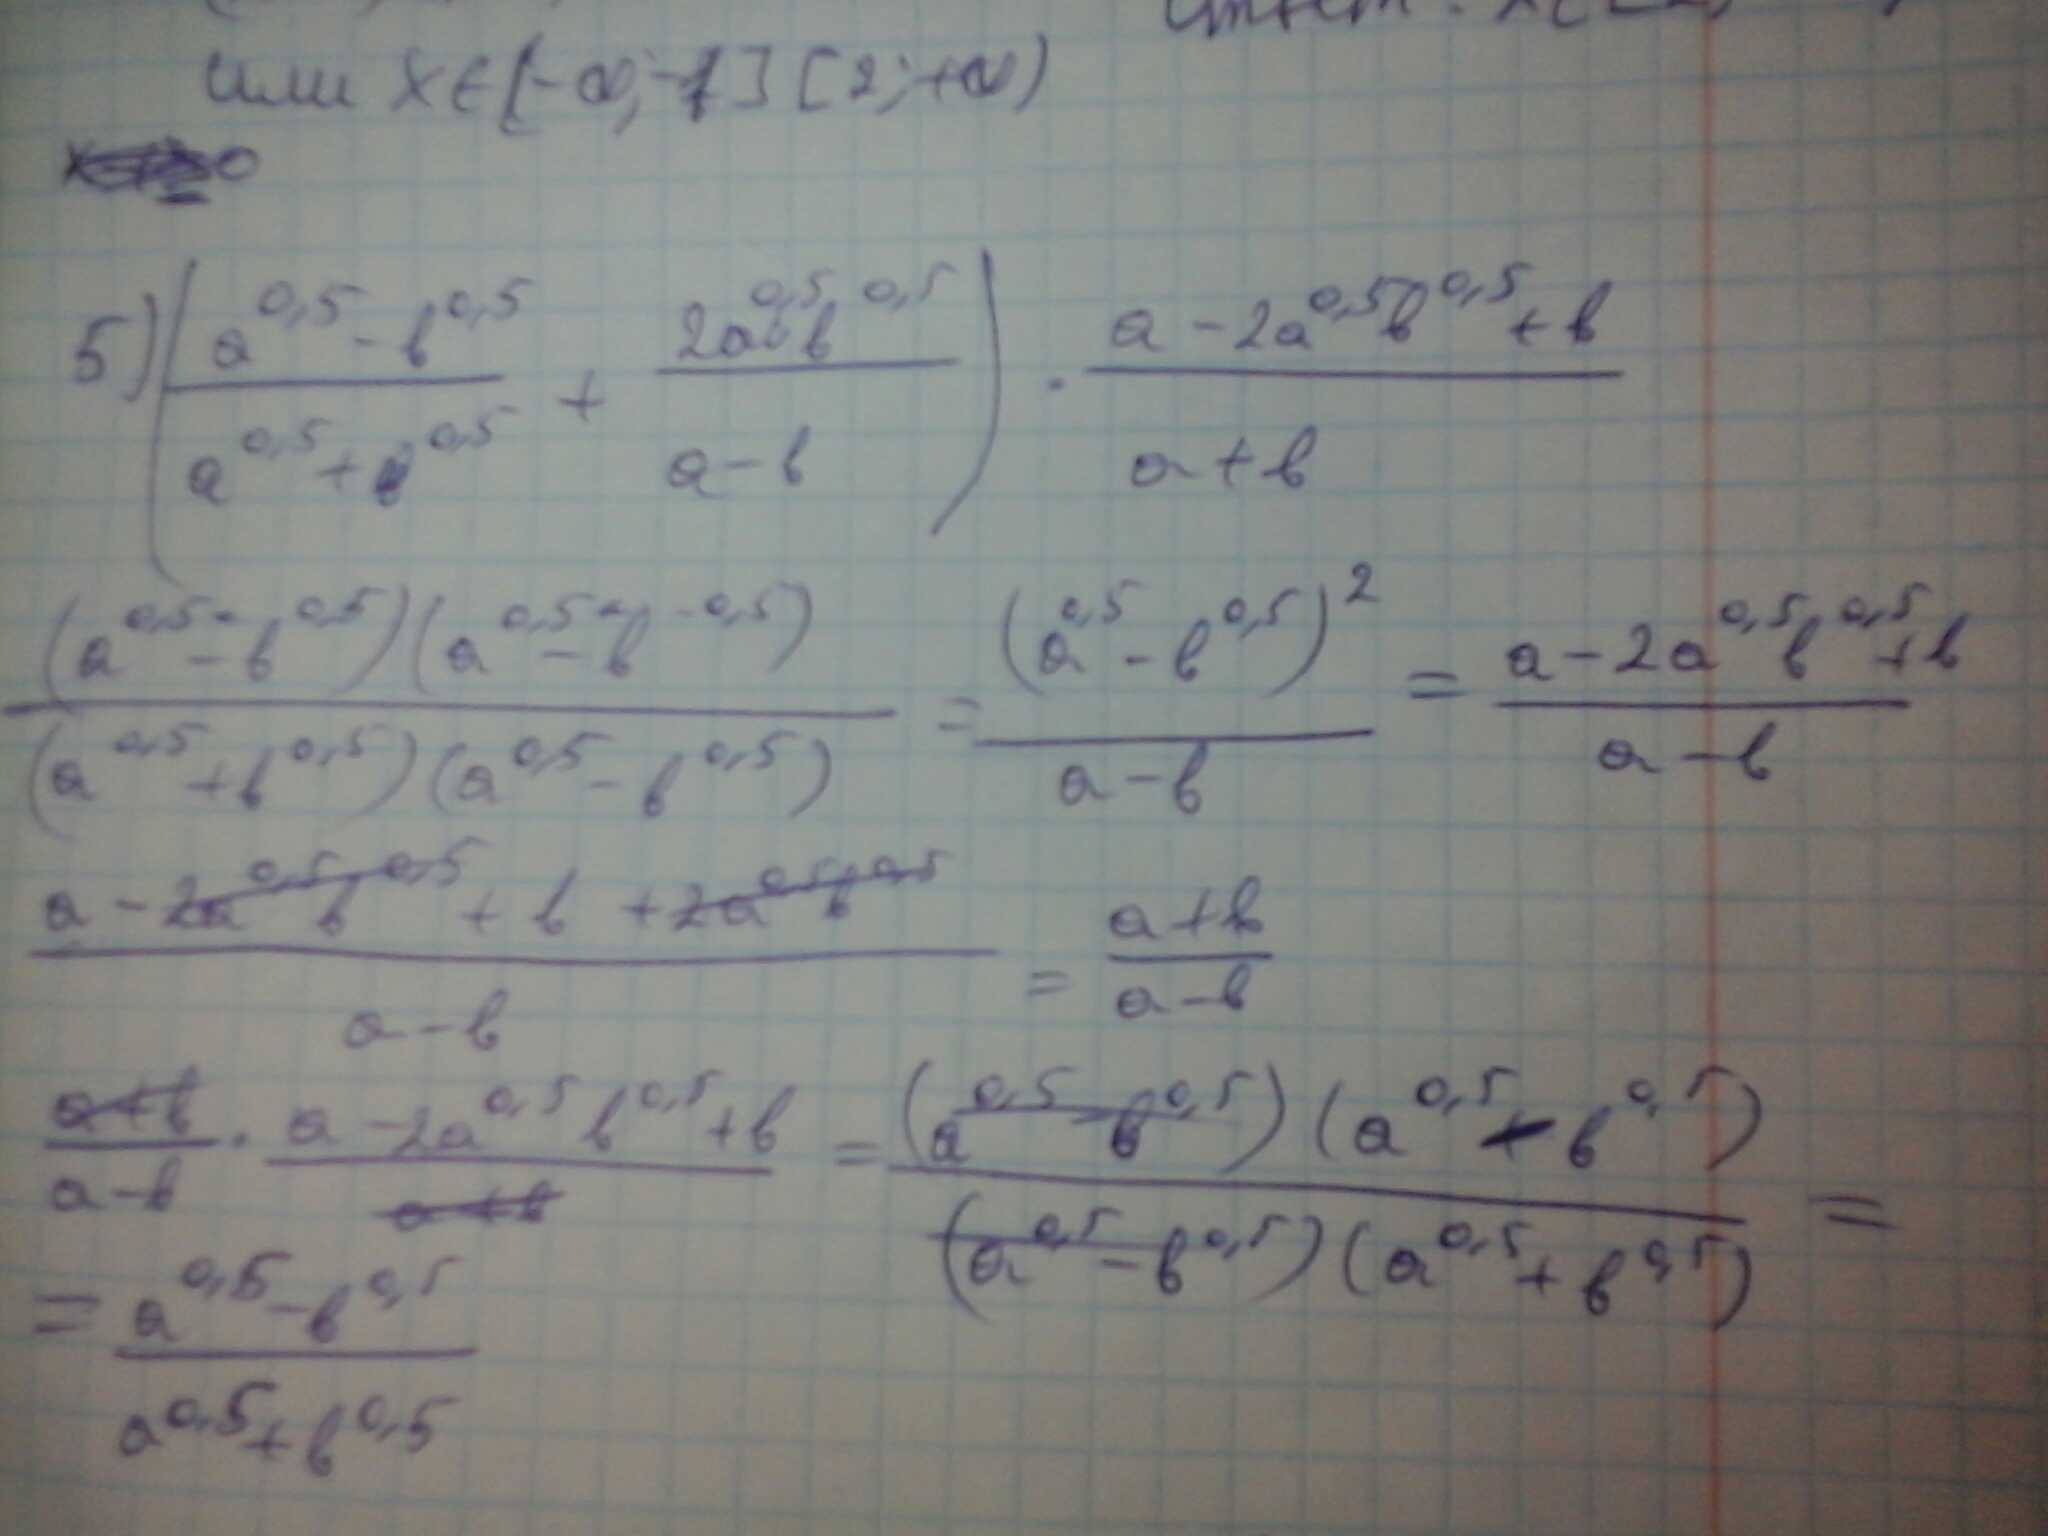 или x∈[-∞;-1][2;+∞)
5) (a^0,5 - b^0,5 / a^0,5 + b^0,5 + 2a^0,5b^0,5 / a-b) · a-2a^0,5b^0,5+b / a+b
(a^0,5 - b^0,5)(a^0,5 - b^0,5) / (a^0,5 + b^0,5)(a^0,5 - b^0,5) = (a^0,5 - b^0,5)^2 / a-b = a-2a^0,5b^0,5+b / a-b
a-2a^0,5b^0,5 + b + 2a^0,5b^0,5 / a-b = a+b / a-b
a+b / a-b · a-2a^0,5b^0,5+b / a+b = (a^0,5 - b^0,5)(a^0,5 - b^0,5) / (a^0,5 - b^0,5)(a^0,5 + b^0,5) =
= a^0,5 - b^0,5 / a^0,5 + b^0,5